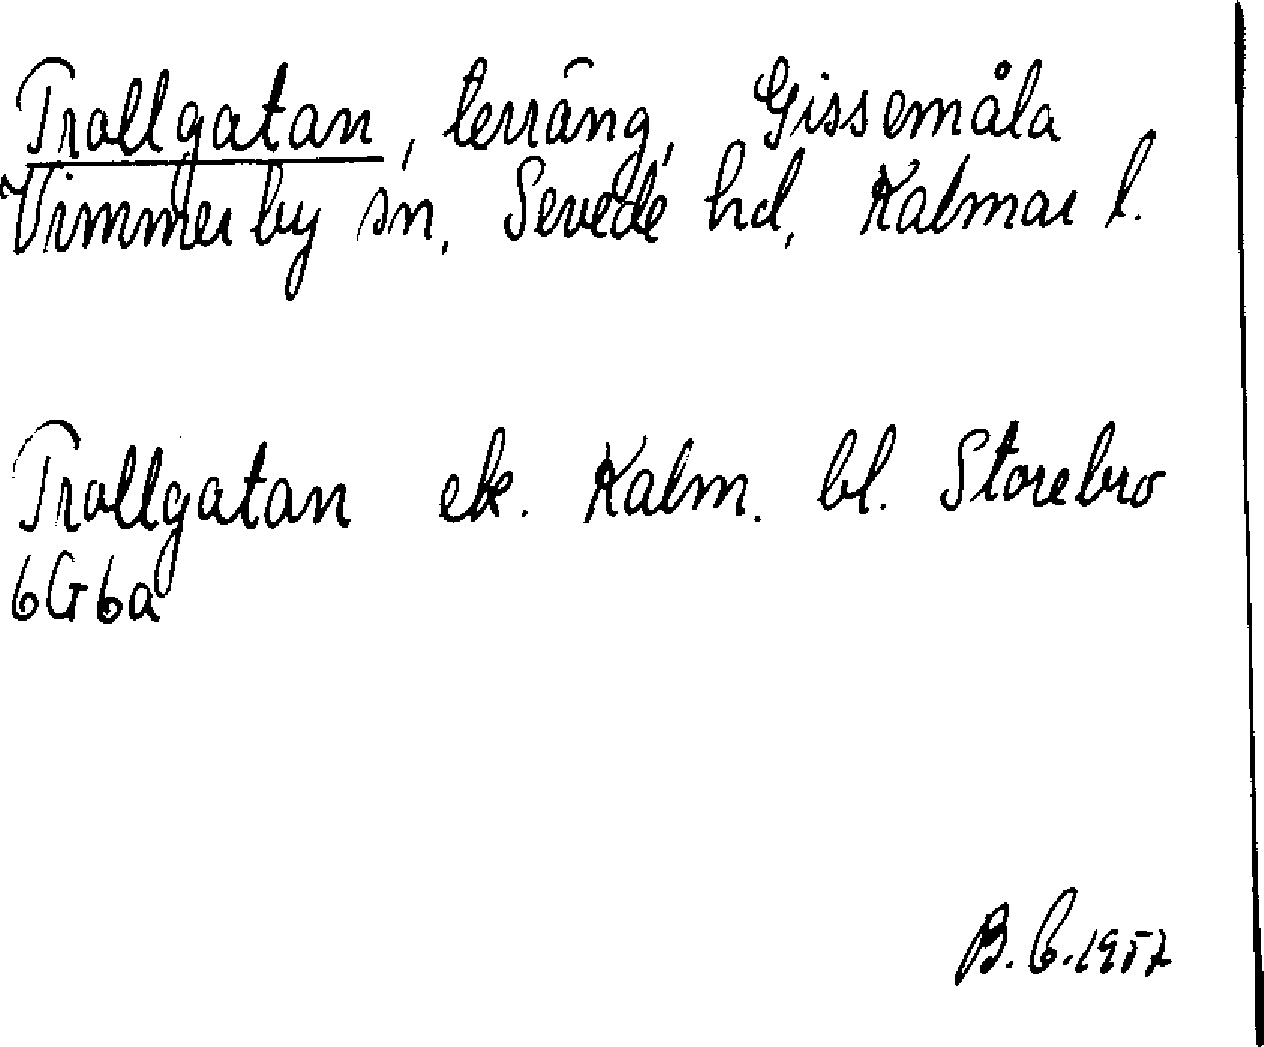 Trollgatan, terräng, Gissemåla
Vimmerby sn, Sevede hd, Kalmar l.
Trollgatan ek. Kalm. bl. Storebro
6G6a
B. C. 1957